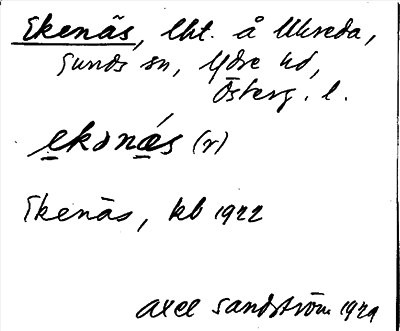 Ekenäs, lht. å Ukreda,
Sunds sn, Ydre hd,
Österg. l.
ekǝnä́s (r)
Ekenäs, kb 1922
Axel Sandström 1929